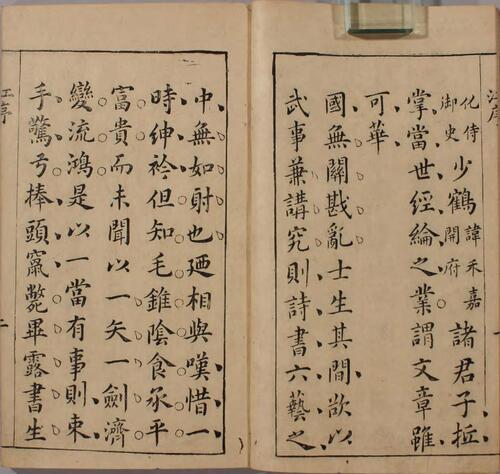 化侍
御史
少鶴
諱禾嘉
開府
諸君子抵
掌當世經綸之業謂文章雖
可華
國無關戡亂士生其間欲以
武事兼講究則詩書六藝之
中無如射也廼相與嘆惜一
時紳衿但知毛錐陰食承平
富貴而未聞以一矢一劍濟
變流鴻是以一當有事則束
手驚弓棒頭竄斃畢露書生